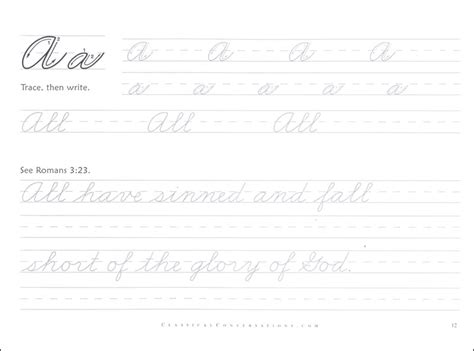 A a A A A A
Trace, then write. a a a a a
All All All
See Romans 3:23.
All have sinned and fall
short of the glory of God.
CLASSICALCONVERSATIONS.COM 12